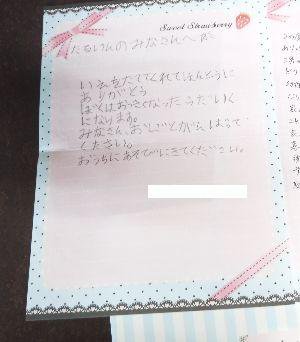 Sweet Strawberry
たるいんのみなさんへ
いえをたててくれてほんとうに
ありがとう
ぼくはおっきくなったらだいく
になります。
みなさん、おしごとがんばって
ください。
おうちにあそびにきてください。